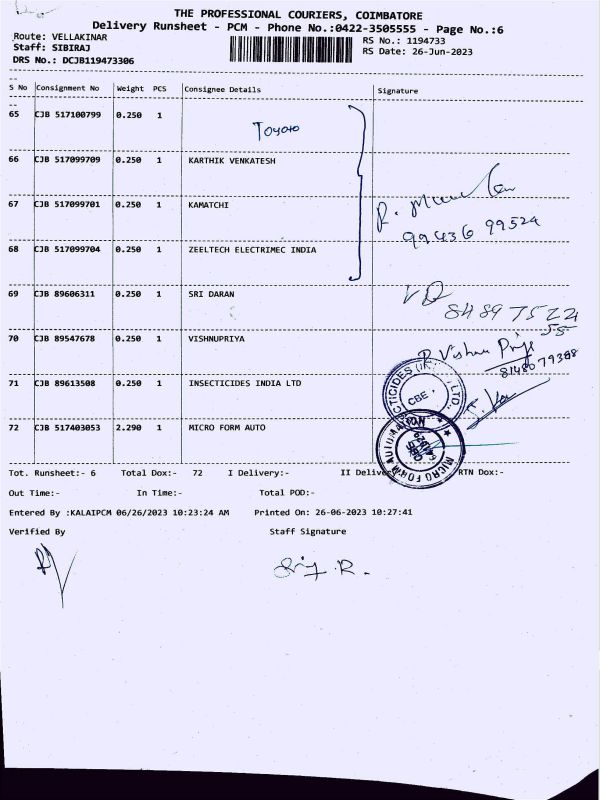 THE PROFESSIONAL COURIERS, COIMBATORE
Delivery Runsheet - PCM - Phone No.:0422-3505555 - Page No.:6
Route: VELLAKINAR
RS No.: 1194733
Staff: SIBIRAJ
RS Date: 26-Jun-2023
DRS No.: DCJB119473306
S No Consignment No Weight PCS Consignee Details Signature
65 CJB 517100799 0.250 1
Toyoto
66 CJB 517099709 0.250 1 KARTHIK VENKATESH
67 CJB 517099701 0.250 1 KAMATCHI
99436 99524
68 CJB 517099704 0.250 1 ZEELTECH ELECTRIMEC INDIA
69 CJB 89606311 0.250 1 SRI DARAN
84897522
55
70 CJB 89547678 0.250 1 VISHNUPRIYA
8148079388
71 CJB 89613508 0.250 1 INSECTICIDES INDIA LTD
CBE
72 CJB 517403053 2.290 1 MICRO FORM AUTO
MICRO FORM AUTOMA
Tot. Runsheet:- 6 Total Dox:- 72 I Delivery:- II Deliver RTN Dox:-
Out Time:- In Time:- Total POD:-
Entered By :KALAIPCM 06/26/2023 10:23:24 AM Printed On: 26-06-2023 10:27:41
Verified By Staff Signature